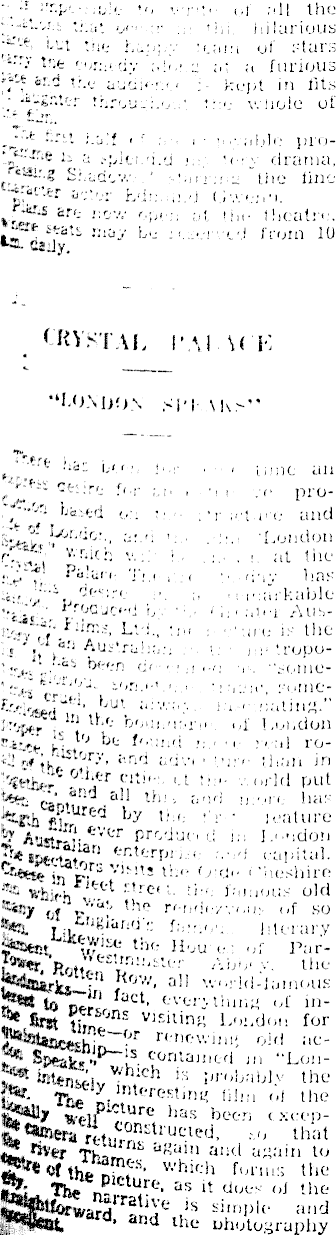 impossible to write of all the
situations that occur in this hilarious
but the happy team of stars
carry the comedy along at a furious
pace and the audience is kept in fits
of laughter throughout the whole of
the film.
The first half of pro-
gramme is a splendid mystery drama,
"Passing Shadows," starring the fine
character actor Edmund Gwenn.
Plans are now open at the theatre,
where seats may be reserved from 10
a.m. daily.
CRYSTAL PALACE
"LONDON SPEAKS"
There has been for some time an
express desire for pro-
duction based on the structure and
life of London, and "London
Speaks," which will at the
Crystal Palace Theatre to-day has
met this desire in a remarkable
fashion. Produced by the Greater Aus-
tralasian Films, Ltd., the picture is the
story of an Australian in the metropo-
lis. It has been described as "some-
times glorious, sometimes tragic, some-
times cruel, but always fascinating."
Enclosed in the boundaries of London
proper is to be found more real ro-
mance, history, and adventure than in
all of the other cities of the world put
together, and all this and more has
been captured by the first feature
length film ever produced in London
by Australian enterprise and capital.
The spectators visits the Olde Cheshire
Cheese in Fleet street, the famous old
inn which was the rendezvous of so
many of England's famous literary
men. Likewise the Houses of Par-
liament, Westminster Abbey, the
Tower, Rotten Row, all world-famous
landmarks—in fact, everything of in-
terest to persons visiting London for
the first time—or renewing old ac-
quaintanceship—is contained in "Lon-
don Speaks," which is probably the
most intensely interesting film of the
year. The picture has been excep-
tionally well constructed, so that
the camera returns again and again to
the river Thames, which forms the
centre of the picture, as it does of the
city. The narrative is simple and
straightforward, and the photography
excellent.